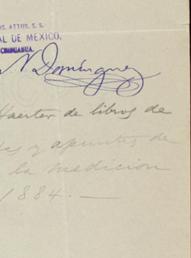 OS. ATTOS. S. S.
AL DE MEXICO.
CHIHUAHUA.
N Domínguez
de libros de
y apuntes de
la medicion
1884. —